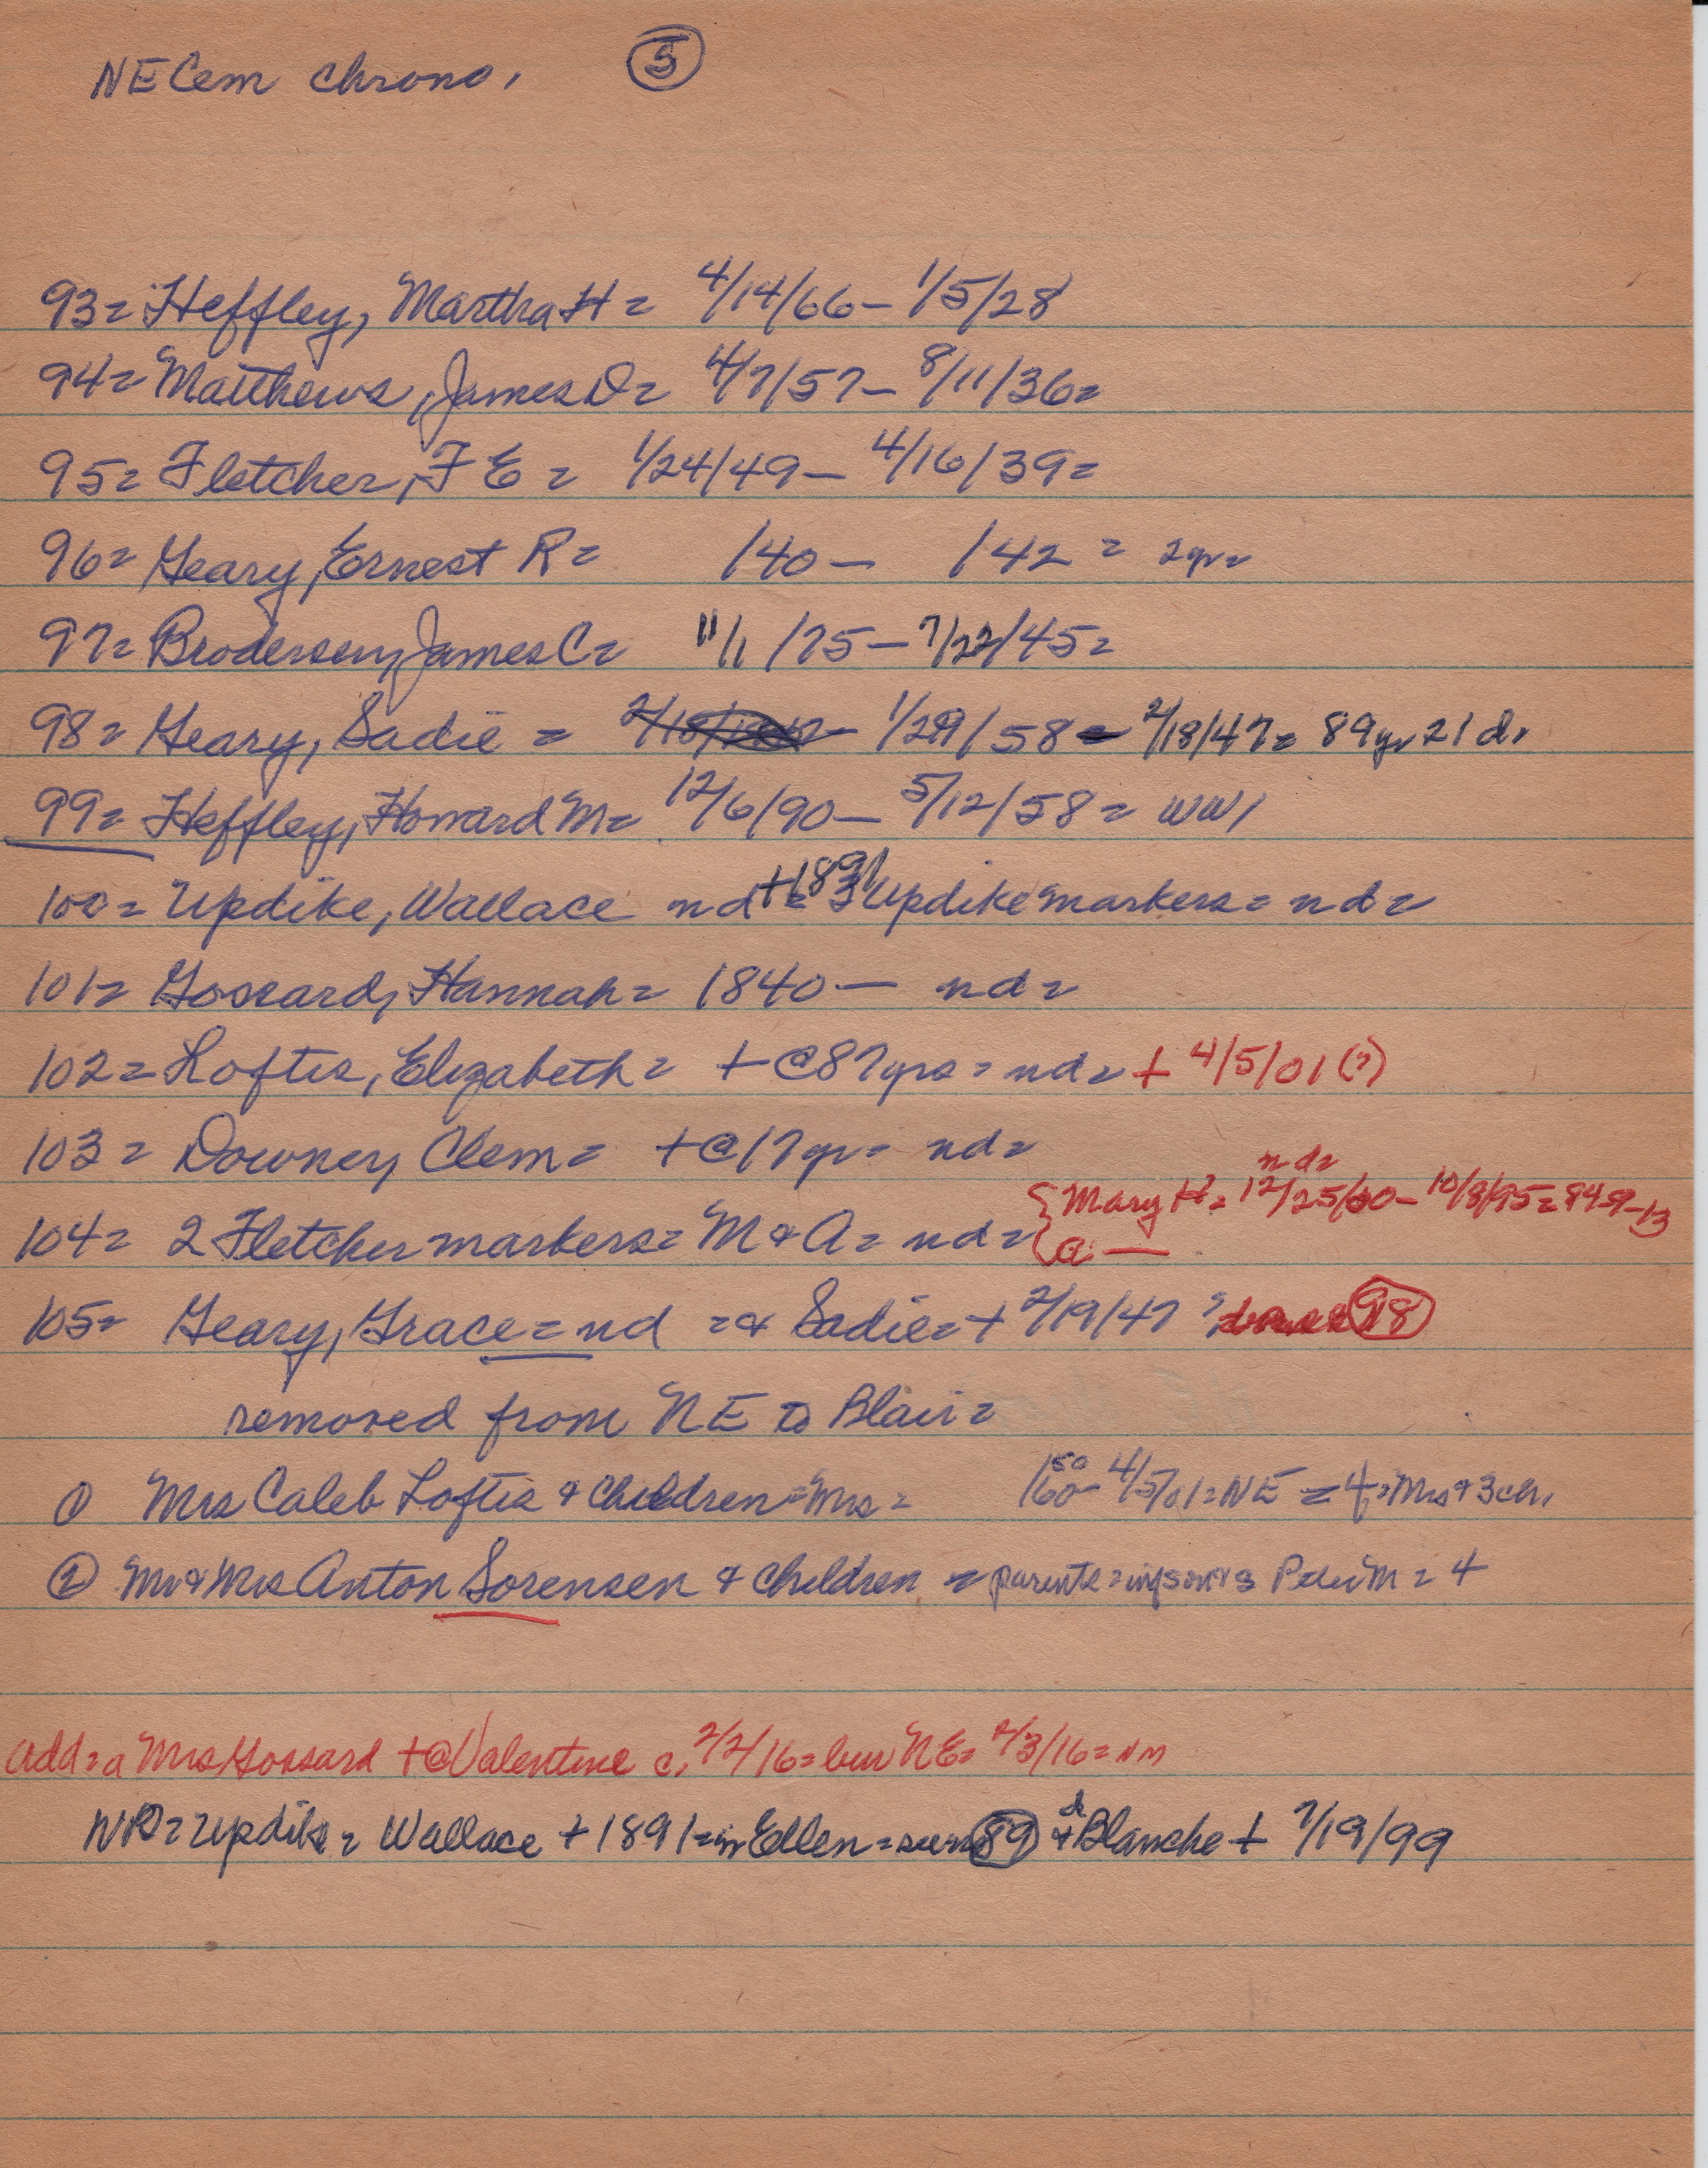 NE Cem chrono. 5
93= Heffley, Martha H= 4/14/66 - 1/5/28
94= Matthews, James D= 4/7/57 - 8/11/36=
95= Fletcher, F E = 1/24/49 - 4/16/39=
96= Geary, Ernest R= /40 - /42 = 2yr=
97= Brodersen, James C= 11/1/75 - 7/22/45=
98= Geary, Sadie = 1/29/58 - 2/18/47= 89yr 21d.
99= Heffley, Howard M= 12/6/90 - 5/12/58= WW1
100= Updike, Wallace nd +1891 = 3 Updike markers= nd=
101= Gossard, Hannah= 1840 - nd=
102= Loftis, Elizabeth= +@87yrs= nd= + 4/5/01(?)
103= Downey, Clem= +@17yr= nd=
nd=
{ Mary H= 12/25/10 - 10/8/95= 84-9-13
104= 2 Fletcher markers= M & A= nd= { a —
105= Geary, Grace= nd =& Sadie= + 2/19/47 ? 98
removed from NE to Blair=
① Mrs Caleb Loftis & Children= Mrs= 50 /60 - 4/5/01=NE = 4= Mrs & 3ch.
② Mr & Mrs Anton Sorensen & children = parents= Peter M= 4
add= a Mrs Gossard +@Valentine c. 2/2/16= bur NE= 2/3/16= NM
NR= Updike= Wallace +1891= Ellen= 89 & d Blanche + 7/19/99